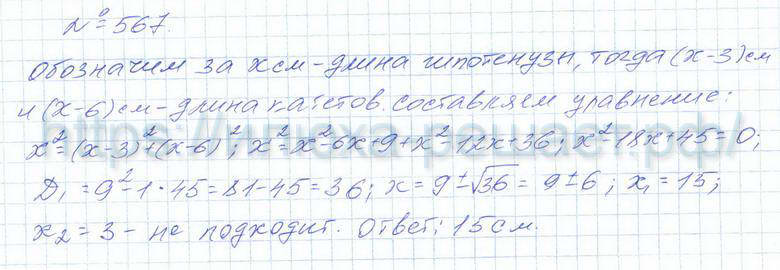 № 567.
Обозначим за x см – длина гипотенузы, тогда (x-3) см
и (x-6) см – длина катетов. Составляем уравнение:
x²=(x-3)²+(x-6)²; x²=x²-6x+9+x²-12x+36; x²-18x+45=0;
D₁=9²-1·45=81-45=36; x=9±√36=9±6; x₁=15;
x₂=3 – не подходит. Ответ: 15 см.